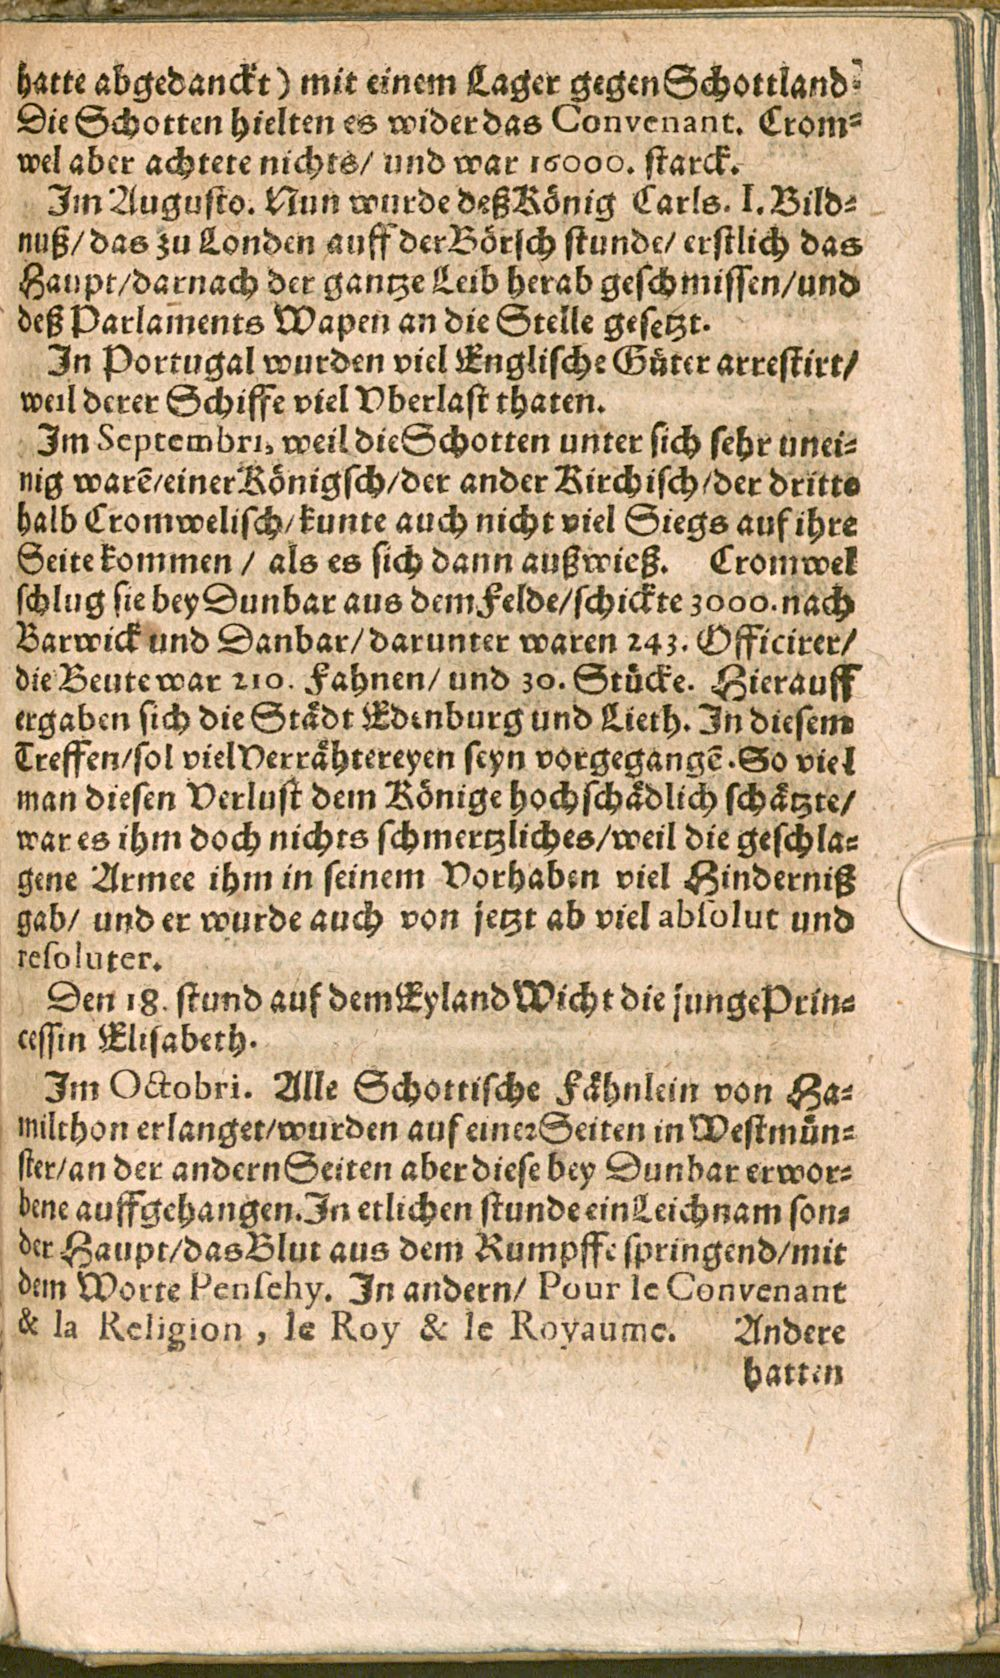 hatte abgedanckt) mit einem Lager gegen Schottland.
Die Schotten hielten es wider das Convenant. Crom-
wel aber achtete nichts/ und war 16000. starck.
Im Augusto. Nun wurde deß König Carls. I. Bild-
nuß/ das zu Londen auff der Börsch stunde/ erstlich das
Haupt/ darnach der gantze Leib herab geschmissen/ und
deß Parlaments Wapen an die Stelle gesetzt.
In Portugal wurden viel Englische Güter arrestirt/
weil derer Schiffe viel Vberlast thaten.
Im Septembri, weil die Schotten unter sich sehr unei-
nig warē/ einer Königsch/ der ander Kirchisch/ der dritte
halb Cromwelisch/ kunte auch nicht viel Siegs auf ihre
Seite kommen / als es sich dann außwieß. Cromwel
schlug sie bey Dunbar aus dem Felde/ schickte 3000. nach
Barwick und Danbar/ darunter waren 243. Officirer/
die Beute war 210. Fahnen/ und 30. Stücke. Hierauff
ergaben sich die Städt Edenburg und Lieth. In diesem
Treffen/ sol viel Verrähtereyen seyn vorgegangē. So viel
man diesen Verlust dem Könige hochschädlich schätzte/
war es ihm doch nichts schmertzliches/ weil die geschla-
gene Armee ihm in seinem Vorhaben viel Hinderniß
gab/ und er wurde auch von jetzt ab viel absolut und
resoluter.
Den 18. stund auf dem Eyland Wicht die junge Prin-
cessin Elisabeth.
Im Octobri. Alle Schottische Fähnlein von Ha-
milthon erlanget/ wurden auf einer Seiten in Westmün-
ster/ an der andern Seiten aber diese bey Dunbar erwor-
bene auffgehangen. In etlichen stunde ein Leichnam son-
der Haupt/ das Blut aus dem Rumpffe springend/ mit
dem Worte Pensehy. In andern/ Pour le Convenant
& la Religion, le Roy & le Royaume. Andere
hatten